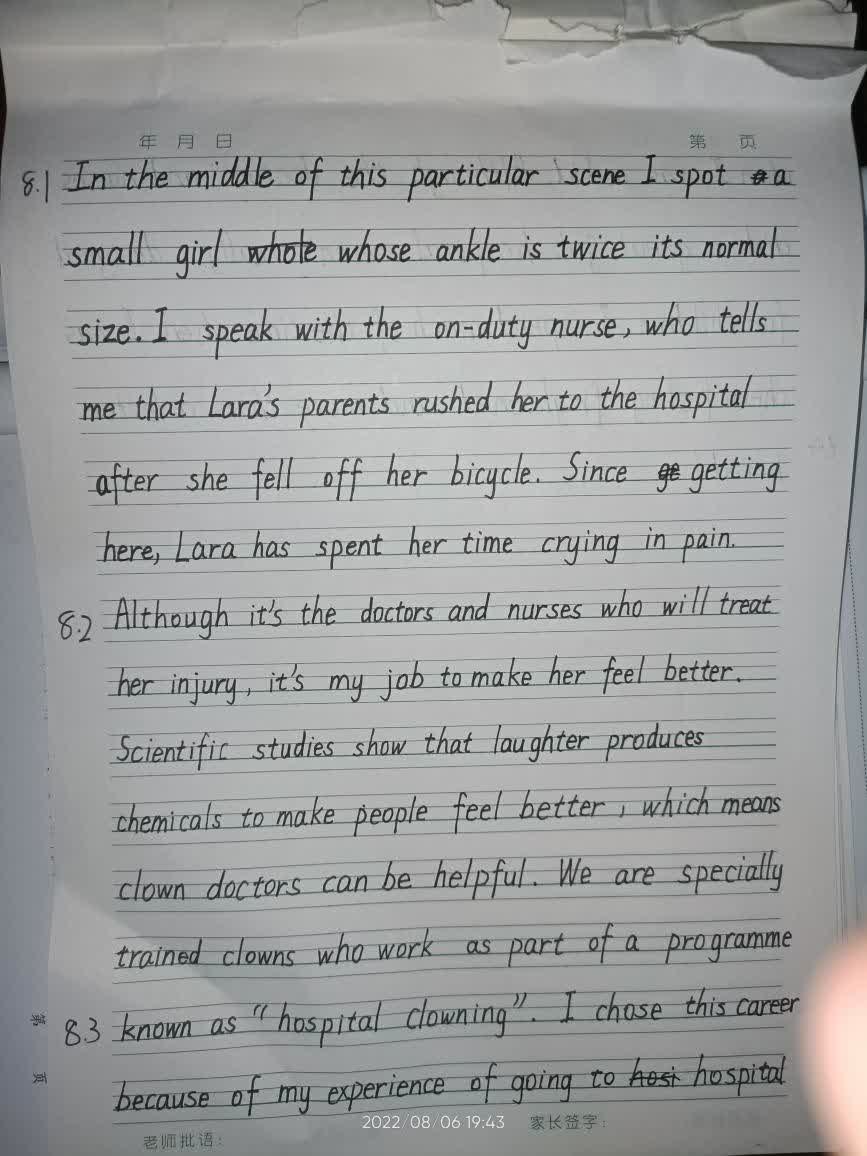 年 月 日 第 页
8.1 In the middle of this particular scene I spot a
small girl whole whose ankle is twice its normal
size. I speak with the on-duty nurse, who tells
me that Lara's parents rushed her to the hospital
after she fell off her bicycle. Since ge getting
here, Lara has spent her time crying in pain.
8.2 Although it's the doctors and nurses who will treat
her injury, it's my job to make her feel better.
Scientific studies show that laughter produces
chemicals to make people feel better, which means
clown doctors can be helpful. We are specially
trained clowns who work as part of a programme
8.3 known as "hospital clowning". I chose this career
because of my experience of going to hosi hospital
第 页
2022/08/06 19:43 家长签字:
老师批语: